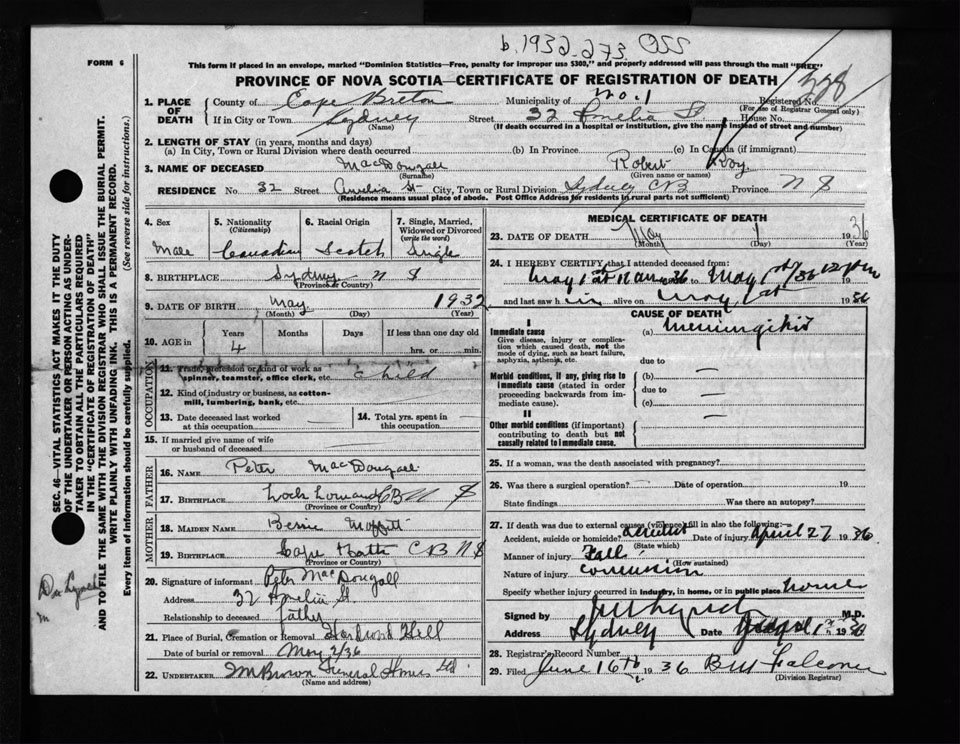 b. 1932-273
FORM 6
This form if placed in an envelope, marked "Dominion Statistics—Free, penalty for improper use $300," and properly addressed will pass through the mail "FREE"
PROVINCE OF NOVA SCOTIA—CERTIFICATE OF REGISTRATION OF DEATH
328
1. PLACE OF DEATH
County of Cape Breton Municipality of No. 1 Registered No.
(For use of Registrar General only)
If in City or Town Sydney Street 32 Amelia St. House No.
(Name) (If death occurred in a hospital or institution, give the name instead of street and number)
2. LENGTH OF STAY (in years, months and days)
(a) In City, Town or Rural Division where death occurred (b) In Province (c) In Canada (if immigrant)
3. NAME OF DECEASED MacDougall Robert Roy
(Surname) (Given name or names)
RESIDENCE No. 32 Street Amelia St City, Town or Rural Division Sydney CB Province N S
(Residence means usual place of abode. Post Office Address for residents in rural parts not sufficient)
4. Sex 5. Nationality (Citizenship) 6. Racial Origin 7. Single, Married, Widowed or Divorced (write the word)
Male Canadian Scotch Single
8. BIRTHPLACE Sydney N S
(Province or Country)
9. DATE OF BIRTH May 1932
(Month) (Day) (Year)
10. AGE in Years Months Days If less than one day old
4 hrs. or min.
OCCUPATION
11. Trade, profession or kind of work as spinner, teamster, office clerk, etc. Child
12. Kind of industry or business, as cotton-mill, lumbering, bank, etc.
13. Date deceased last worked at this occupation 14. Total yrs. spent in this occupation
15. If married give name of wife or husband of deceased
FATHER
16. NAME Peter MacDougall
17. BIRTHPLACE Loch Lomand CB N S
(Province or Country)
MOTHER
18. MAIDEN NAME Bessie Moffitt
19. BIRTHPLACE Cape CB N S
(Province or Country)
20. Signature of informant Peter MacDougall
Address 32 Amelia St.
Relationship to deceased father
21. Place of Burial, Cremation or Removal Hardwood Hill
Date of burial or removal May 2/36
22. UNDERTAKER Brown Funeral Homes Ltd
(Name and address)
MEDICAL CERTIFICATE OF DEATH
23. DATE OF DEATH May 1 1936
(Month) (Day) (Year)
24. I HEREBY CERTIFY that I attended deceased from:
May 1st 36 to May 1st/36 19
and last saw him alive on May 1st 1936
CAUSE OF DEATH
I
Immediate cause
Give disease, injury or complication which caused death, not the mode of dying, such as heart failure, asphyxia, asthenia, etc.
(a) Meningitis
due to
Morbid conditions, if any, giving rise to immediate cause (stated in order proceeding backwards from immediate cause).
(b) —
due to
(c) —
II
Other morbid conditions (if important) contributing to death but not causally related to immediate cause.
25. If a woman, was the death associated with pregnancy?
26. Was there a surgical operation? Date of operation 19
State findings Was there an autopsy?
27. If death was due to external causes (violence) fill in also the following:—
Accident, suicide or homicide? accident Date of injury April 27 1936
(State which)
Manner of injury Fall
(How sustained)
Nature of injury concussion
Specify whether injury occurred in industry, in home, or in public place home
Signed by Lynch M.D.
Address Sydney Date 1936
28. Registrar's Record Number
29. Filed June 16th 1936 Falconer
(Division Registrar)
SEC. 46—VITAL STATISTICS ACT MAKES IT THE DUTY
OF THE UNDERTAKER OR PERSON ACTING AS UNDER-
TAKER TO OBTAIN ALL THE PARTICULARS REQUIRED
IN THE "CERTIFICATE OF REGISTRATION OF DEATH"
AND TO FILE THE SAME WITH THE DIVISION REGISTRAR WHO SHALL ISSUE THE BURIAL PERMIT.
WRITE PLAINLY WITH UNFADING INK. THIS IS A PERMANENT RECORD.
Every item of information should be carefully supplied. (See reverse side for instructions.)
Dr Lynch
m